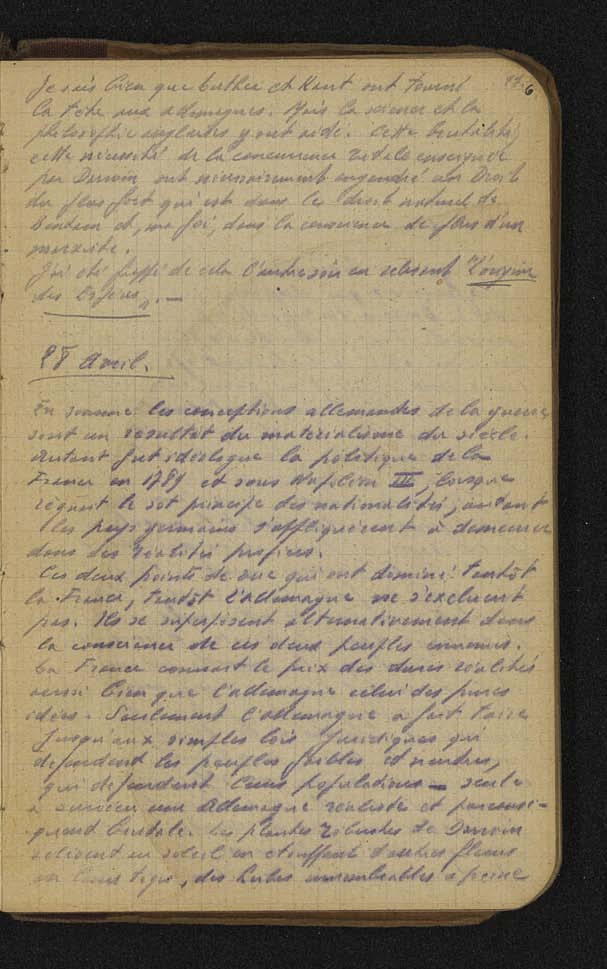 Je sais bien que Luther et Kant ont tourné
la tête aux allemagnes. Mais la science et la
philosophie anglaises y ont aidé. Cette brutalité,
cette nécessité de la concurrence vitale enseignée
par Darwin ont nécessairement engendré un Droit
du plus fort qui est dans le droit naturel de
et, ma foi, dans la conscience de plus d'un
marxiste.
J'ai été frappé de cela l'autre soir en relisant L'origine
des Espèces. —
28 Avril.
En somme les conceptions allemandes de la guerre
sont un résultat du matérialisme du siècle.
Autant fut idéologue la politique de la
France en 1789 et sous Napoléon III, lorsque
régnait le sot principe des nationalités, autant
les pays germains s'appliquèrent à demeurer
dans des réalités propices.
Ces deux points de vue qui ont dominé tantôt
la France, tantôt l'Allemagne ne s'excluent
pas. Ils se superposent alternativement dans
la conscience de ces deux peuples ennemis.
La France connaît le prix des dures réalités
aussi bien que l'allemagne celui des pures
idées. Seulement l'allemagne a fait taire
jusqu'aux simples lois juridiques qui
défendent les peuples faibles et neutres,
qui défendent leurs populations — seule
a survécu une Allemagne réaliste et parconsé-
quent brutale. Les plantes robustes de Darwin
au soleil en étouffant d'autres fleurs
en leurs tiges, des herbes innombrables à peine